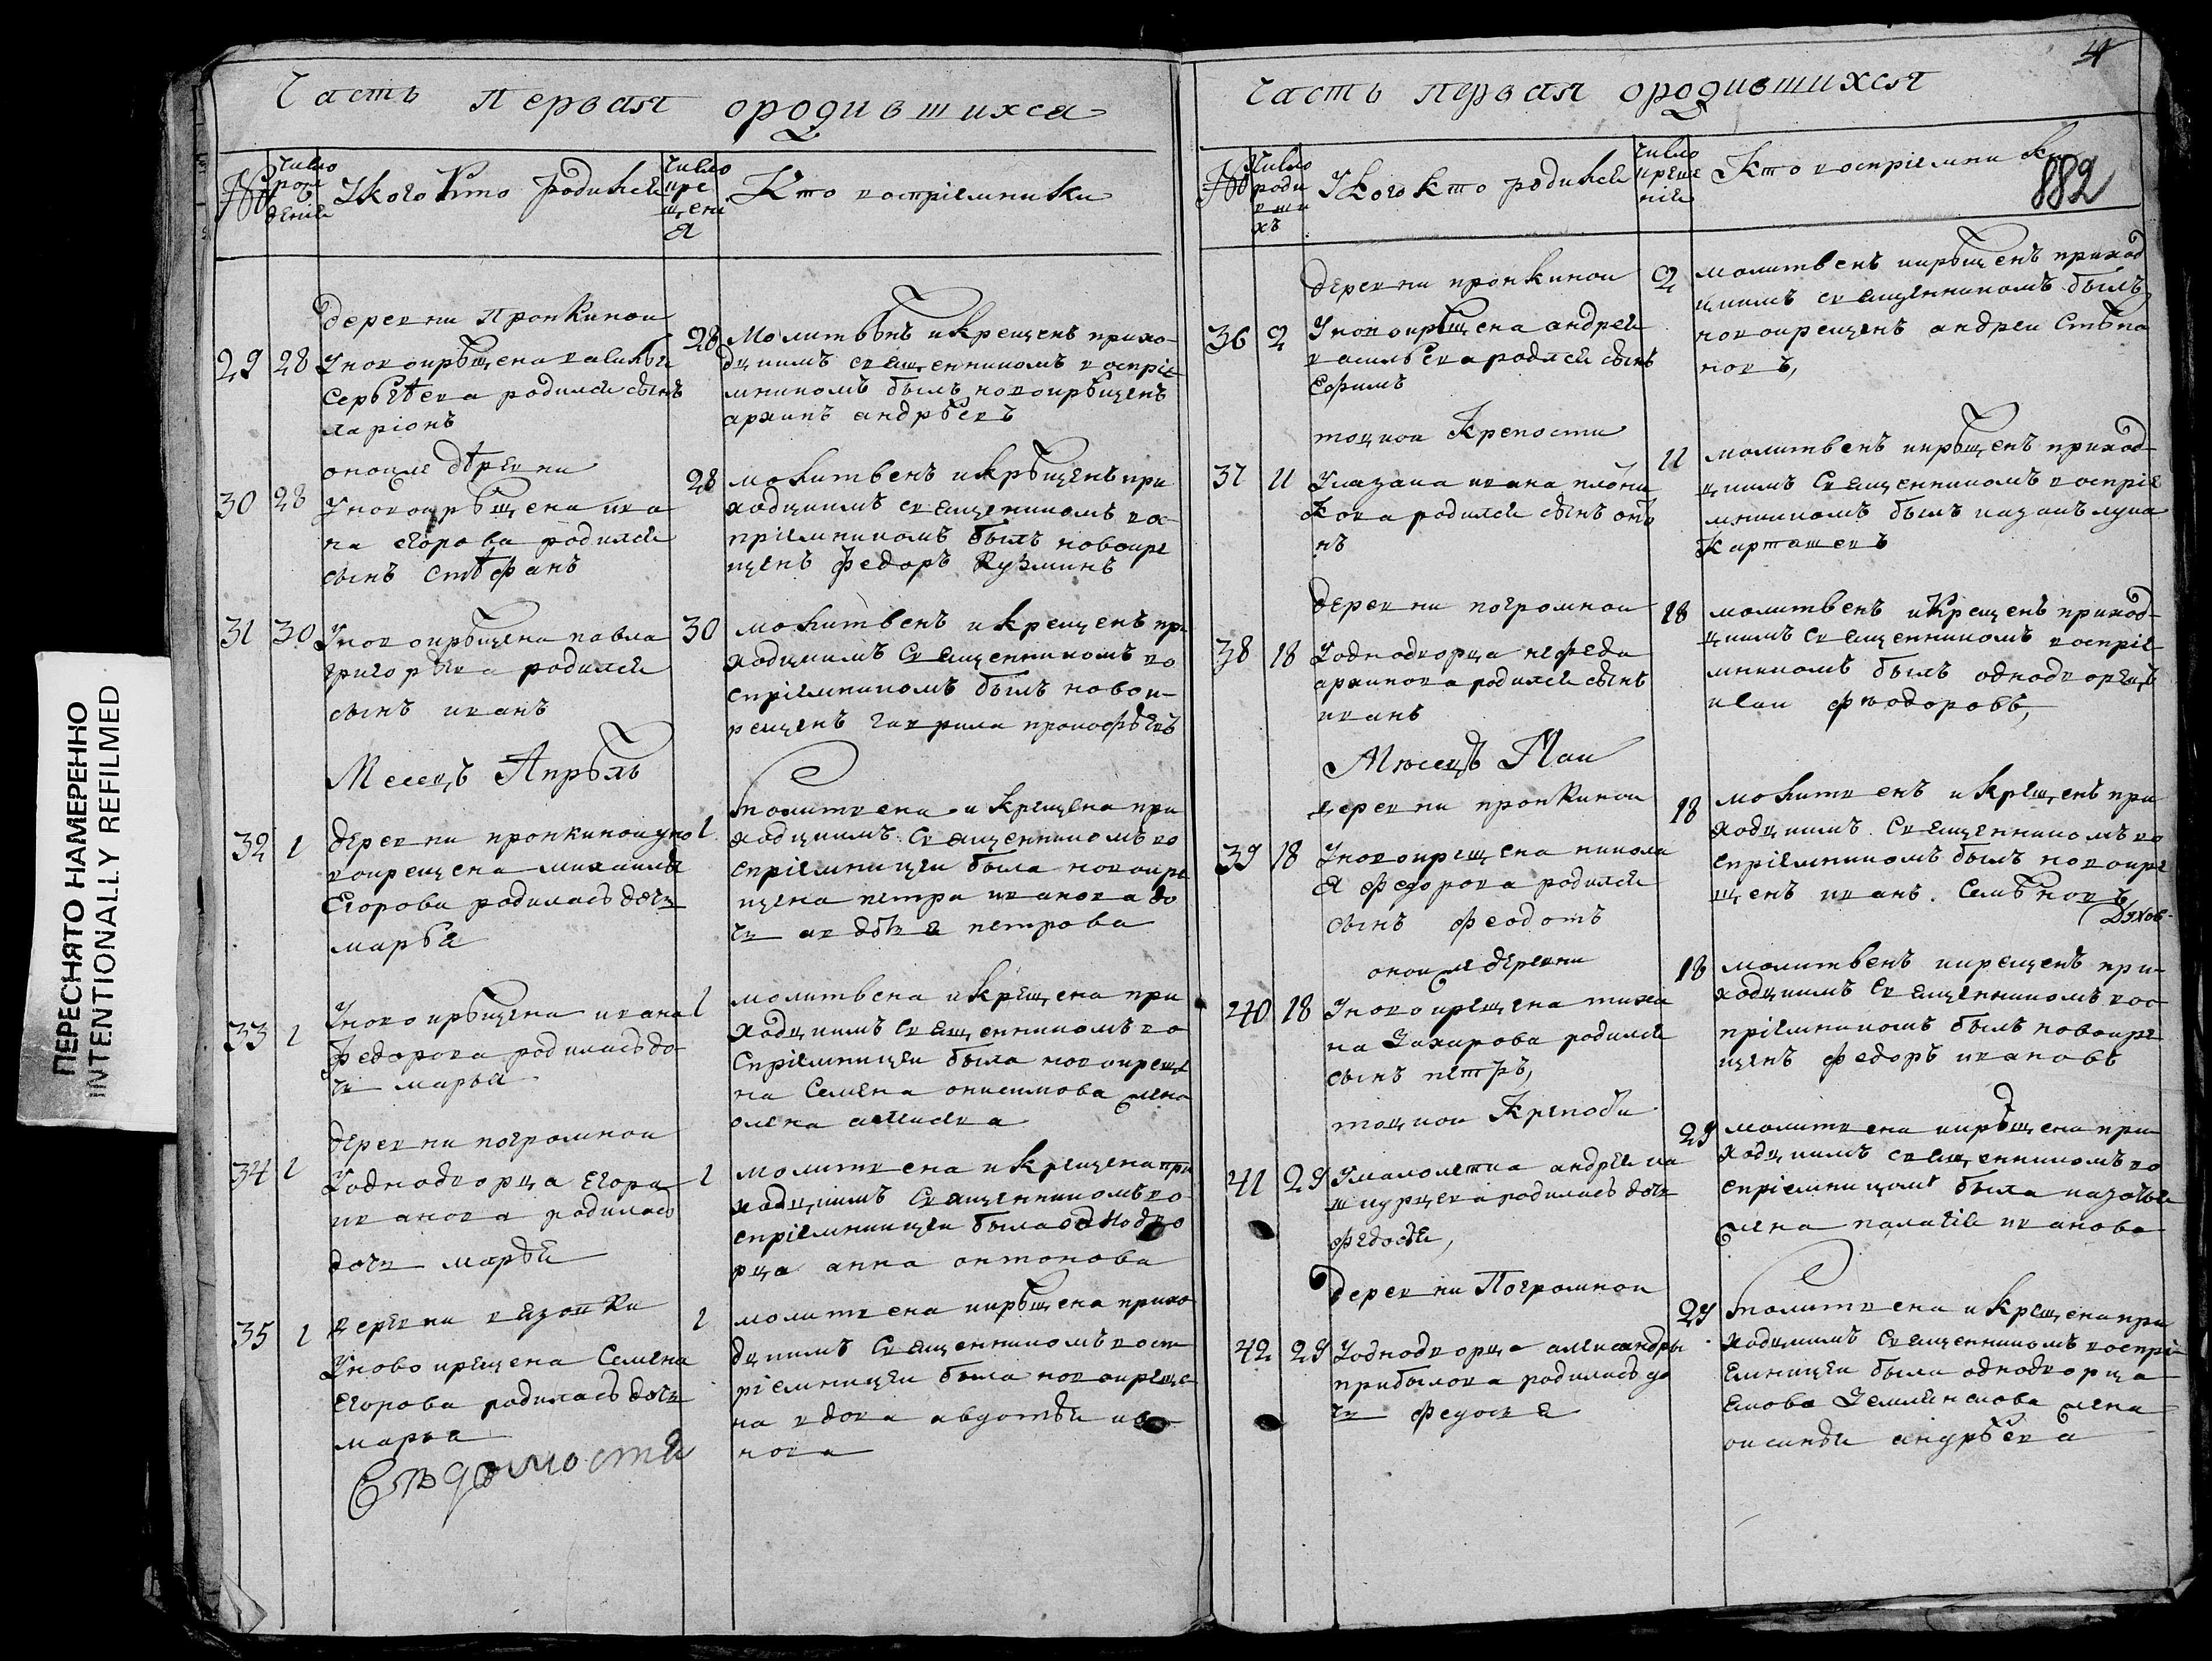 Часть первая ородившихся
№ число рождения
Укого кто родился
число крещения
Кто восприемники
деревни Пронкиной
29 28 Уновокрѣщена василья
Сергѣева родился сынъ
ларіонъ
28 Молитвѣнъ икрещенъ прихо-
дцкимъ священникомъ воспріе
мникомъ былъ новокрѣщенъ
архипъ андрѣевъ
оной же дѣревни
30 28 Уновокрѣщена ива
на егорова родился
сынъ стѣфанъ
28 молитвенъ икрѣщенъ при
ходцкимъ священникомъ вос
пріемникомъ былъ новокре
щенъ федоръ кузминъ
31 30 Уновокрѣщена павла
григорьева родился
сынъ иванъ
30 молитвенъ и крещенъ при
ходцкимъ священникомъ во
спріемникомъ былъ новок-
рещенъ гаврила
Месецъ Апрѣль
32 1 деревни пронкиной уно
вокрещена михаила
Егорова родилась дочь
марья
1 молитвена и крещена при
ходцкимъ священникомъ во
спріемницей была новокре
щена петра иванова до
чь авдотья петрова
33 1 Уновокрѣщена ивана
федорова родилась до
чь марья
1 молитвена и крещена при
ходцкимъ священникомъ во
спріемницей была новокреще
на Семена онисимова жена
олена
деревни погромной
34 1 Уоднодворца Егора
иванова родилась
дочь марья
1 молитвена и крещена при
ходцкимъ священникомъ во
спріемницей была однодво
рца анна антонова
деревни вязовки
35 1 Уново крещена Семена
Егорова родилась дочь
марья
1 молитвена икрѣщена прихо
дцкимъ священникомъ восп
ріемницей была новокреще
на вдова авдотья ива
нова
4
882
Часть первая ородившихся
№ число родившихъ
Укого кто родился
число крещения
Кто восприемники
деревни пронкиной
36 2 Уновокрѣщена андрея
васильева родился сынъ
Ефимъ
2 молитвенъ икрѣщенъ приход
цкимъ священникомъ былъ
новокрещенъ андрей Стѣпа
новъ,
тоцкой Крепости
37 11 Указака ивана плотни
кова родился сынъ
11 молитвенъ икрѣщенъ приход-
цкимъ Священникомъ воспріе
мникомъ былъ казакъ лука
Карташевъ
деревни погромной
38 18 Уоднодворца нефеда
архипова родился сынъ
иванъ
18 молитвенъ икрещенъ приход-
цкимъ священникомъ воспріе
мникомъ былъ однодворецъ
фюодоровъ,
Мюсецъ Май
деревни пронкиной
39 18 Уновокрещена никола
я федорова родился
сынъ феодотъ
18 молитвенъ и крещенъ при
ходцкимъ Священникомъ во
спріемникомъ былъ новокре
щенъ иванъ Семѣновъ
оной же деревни
40 18 Уновокрещена тихо
на Захарова родился
сынъ петръ,
18 молитвенъ икрещенъ при-
ходцкимъ Священникомъ вос
пріемникомъ былъ новокре
щенъ федоръ ивановъ
тоцкой Крепости
41 29 Умалолетка андрея ка
шкурцева родилась дочь
федосья,
29 молитвена икрѣщена при
ходцкимъ священникомъ во
спріемницомъ была казачья
жена иванова
деревни Погромной
42 29 Уоднодворца александры
прибылова родилась до
чь федосья
29 молитвена икрещена при
ходцкимъ Священникомъ воспрі
емницей была однодворца
жена
оксинья андрѣева
ПЕРЕСНЯТО НАМЕРЕННО
INTENTIONALLY REFILMED